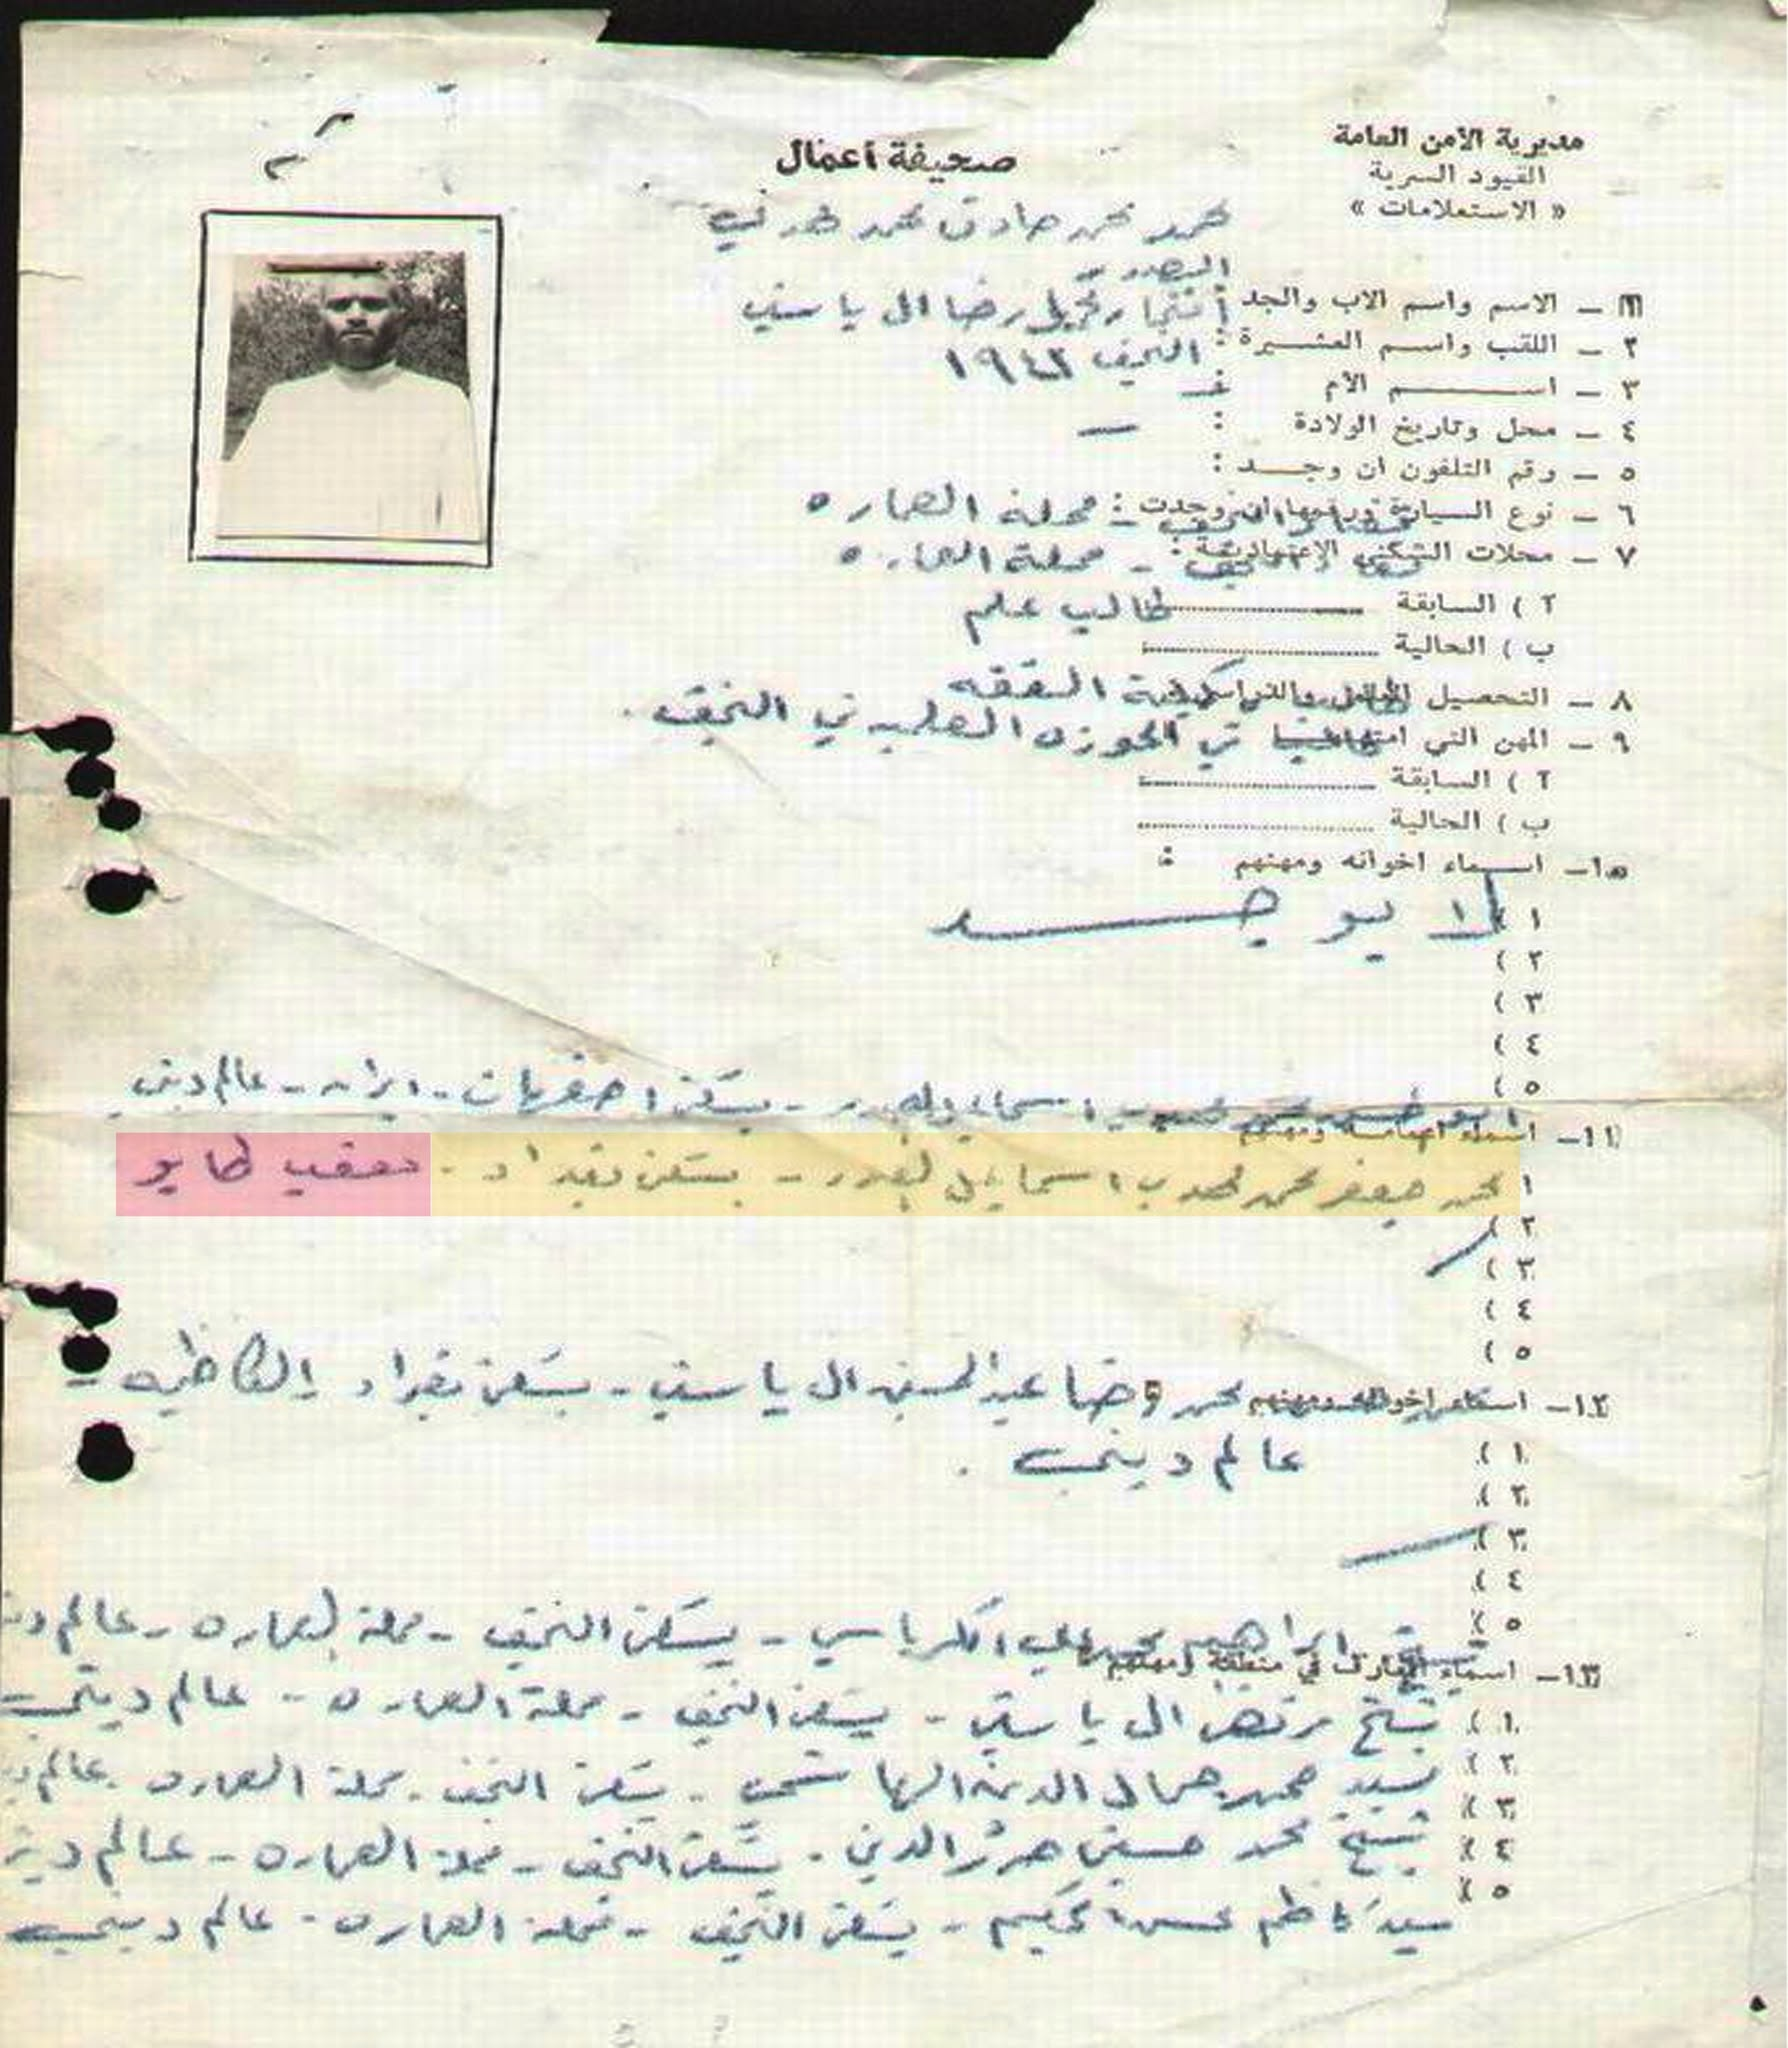 مديرية الامن العامة
القيود السرية
« الاستعلامات »
صحيفة أعمال
محمد محمد صادق محمد مهدي
الصدر
١ – الاسم واسم الاب والجد
أنتخاب محمد رضا ال ياسين
٢ – اللقب واسم العشيرة :
النجف ١٩٤٢
٣ – اسم الام
٤ – محل وتاريخ الولادة : —
٥ – رقم التلفون ان وجد :
٦ – نوع السيارة ورقمها ان وجدت :
النجف – محلة العماره
٧ – محلات السكنى الاعتيادية :
النجف – محلة العماره
آ ) السابقة
طالب علم
ب ) الحالية
٨ – التحصيل
كلية الفقه
٩ – المهن التي
في الحوزه العلميه في النجف .
آ ) السابقة
ب ) الحالية
١٠– اسماء اخوانه ومهنهم :
١ ) لا يوجد
٢ )
٣ )
٤ )
٥ )
اسماعيل الصدر – يسكن اصفهان – ايران – عالم ديني
١١– اسماء اعمامه ومهنهم
١ محمد جعفر محمد مهدي اسماعيل الصدر – يسكن بغداد – معقب طابو
٢ )
٣ )
٤ )
٥ )
محمد رضا عبد الحسين ال ياسين – يسكن بغداد الكاظميه –
١٢– اسماء اخواله ومهنهم
عالم ديني .
١ )
٢ )
٣ )
٤ )
٥ )
شيخ ابراهيم محمد علي الكرباسي – يسكن النجف – محلة العماره – عالم
١٣– اسماء المعارف في منطقته ومهنهم
١ ) شيخ مرتضى ال ياسين – يسكن النجف – محلة العماره – عالم ديني
٢ ) سيد محمد جمال الدين الهاشمي – يسكن النجف – محلة العماره – عالم
٣ )
٤ ) شيخ محمد حسين حرز الدين – يسكن النجف – محلة العماره – عالم
٥ )
سيد كاظم محسن الحكيم – يسكن النجف – محلة العماره – عالم ديني